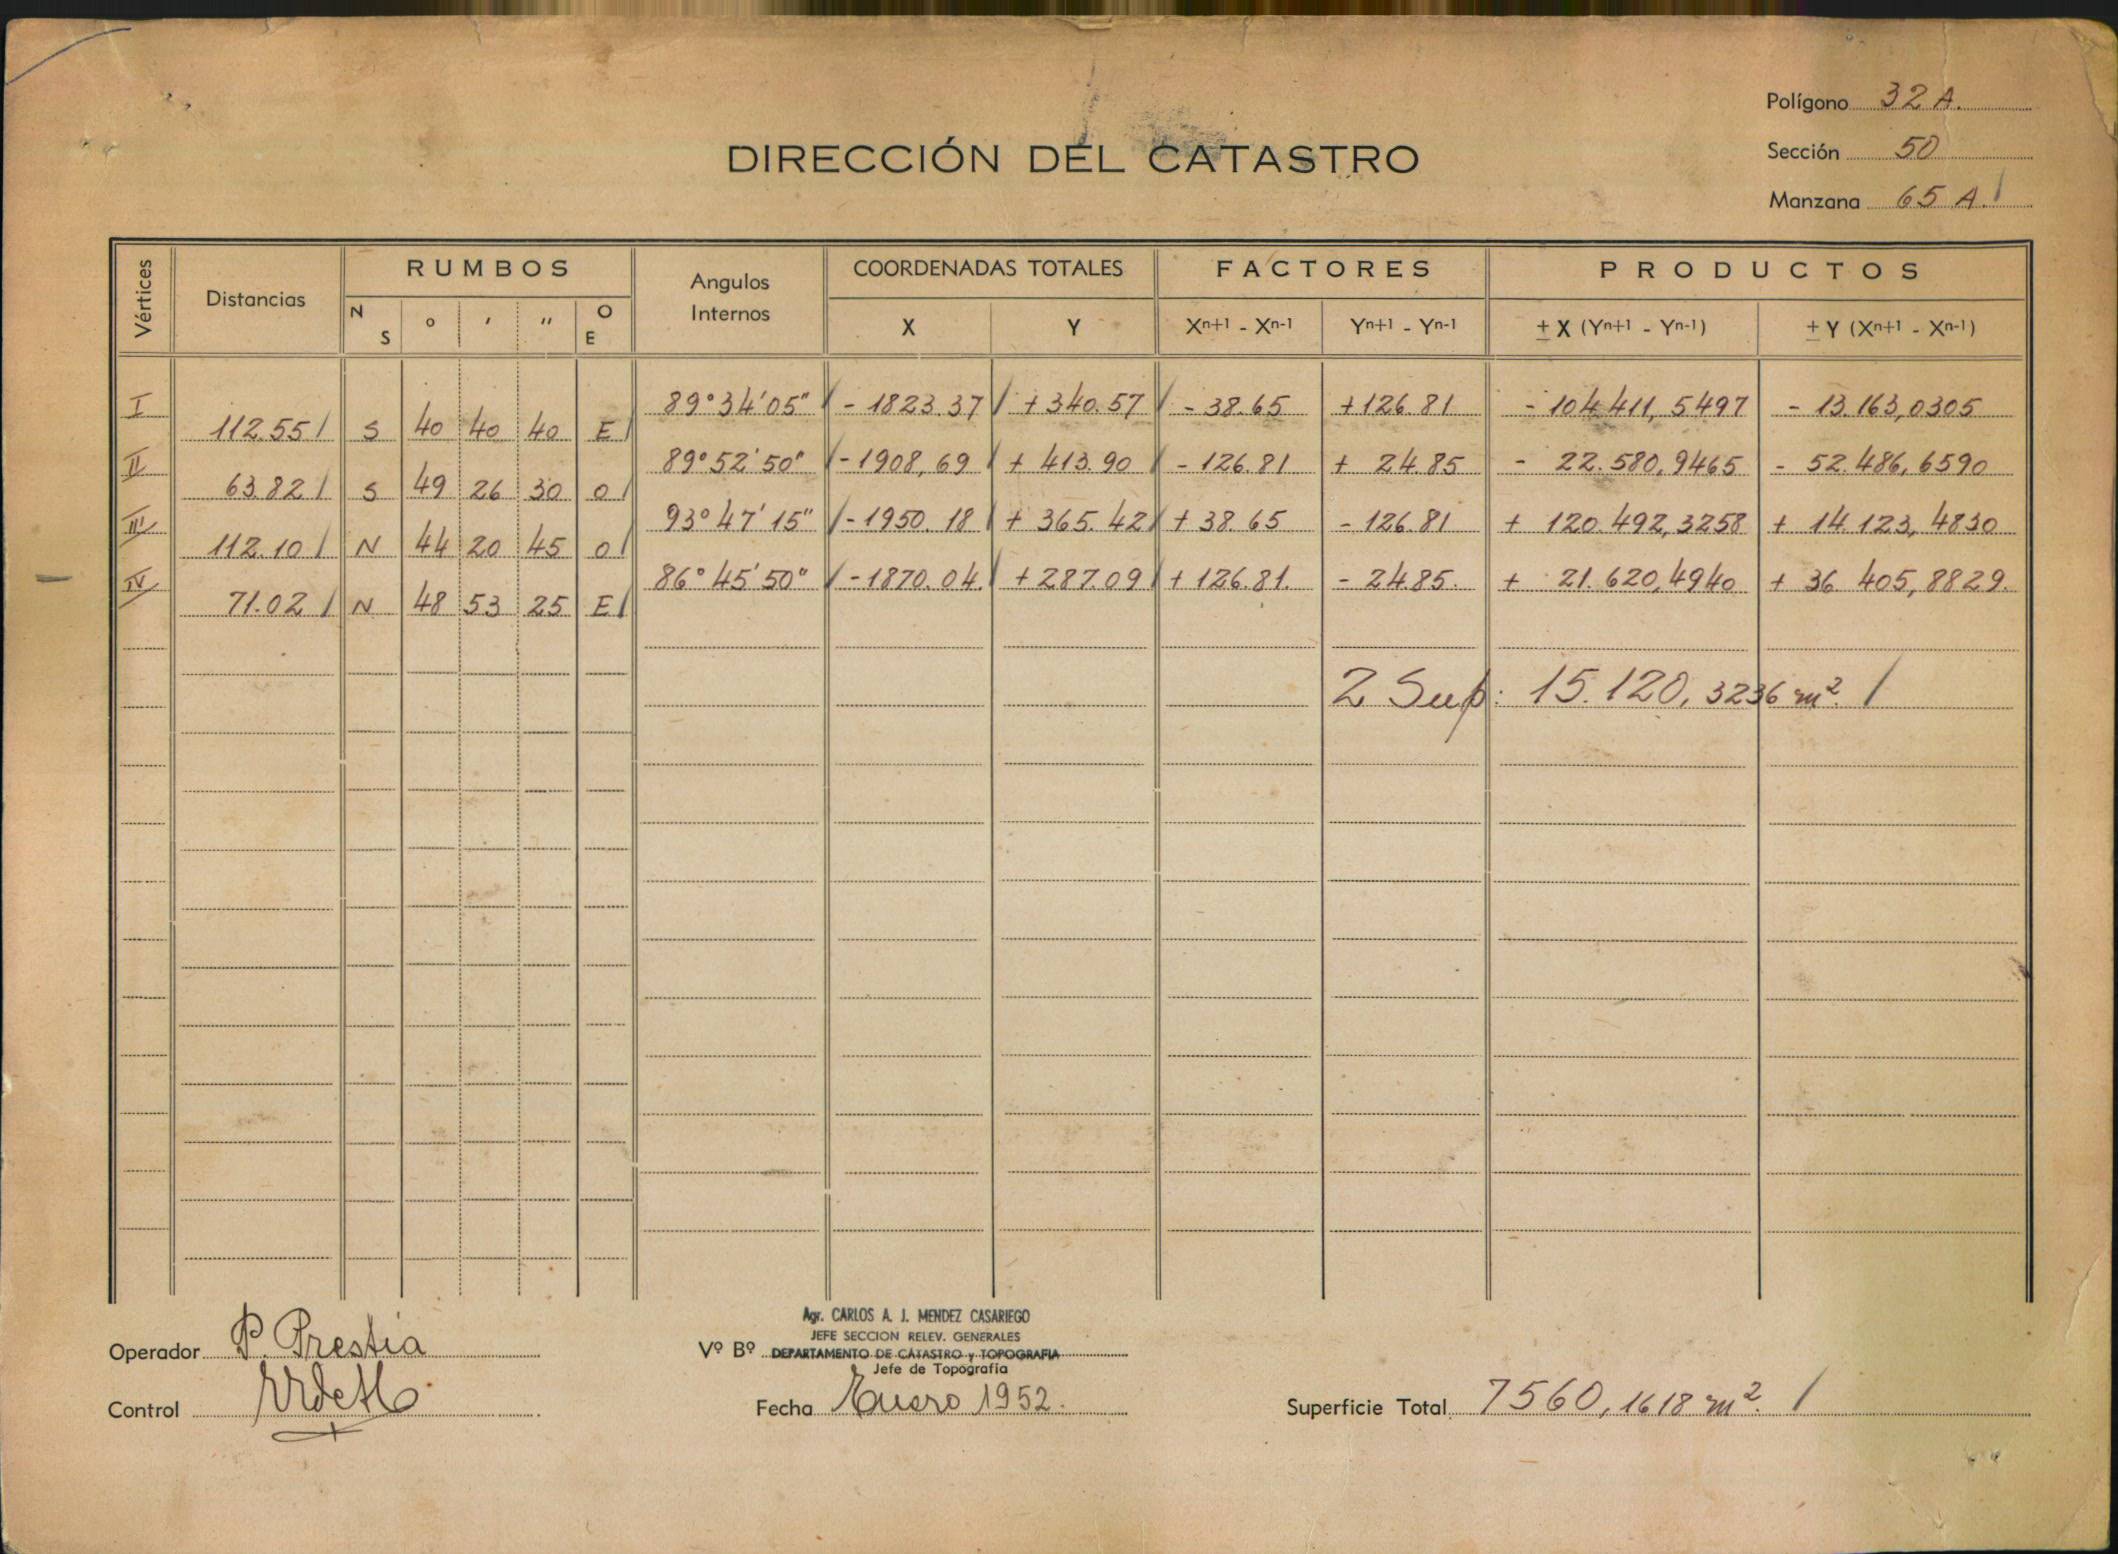 Polígono 32 A.
DIRECCIÓN DEL CATASTRO
Sección 50
Manzana 65 A.
Vértices Distancias RUMBOS Angulos Internos COORDENADAS TOTALES FACTORES PRODUCTOS
N S ° ' '' O E X Y Xn+1 - Xn-1 Yn+1 - Yn-1 ± X (Yn+1 - Yn-1) ± Y (Xn+1 - Xn-1)
I 89°34'05" - 1823.37 + 340.57 - 38.65 + 126.81 - 104.411,5497 - 13.163,0305
112.55 S 40 40 40 E
II 89°52'50" - 1908,69 + 413.90 - 126.81 + 24.85 - 22.580,9465 - 52.486,6590
63.82 S 49 26 30 O
III 93°47'15" - 1950.18 + 365.42 + 38.65 - 126.81 + 120.492,3258 + 14.123,4830
112.10 N 44 20 45 O
IV 86°45'50" - 1870.04 + 287.09 + 126.81. - 24.85. + 21.620,4940 + 36.405,8829.
71.02 N 48 53 25 E
2 Sup: 15.120,3236 m².
Agr. CARLOS A. J. MENDEZ CASARIEGO
JEFE SECCION RELEV. GENERALES
Operador P. Prestia Vº Bº DEPARTAMENTO DE CATASTRO y TOPOGRAFIA
Jefe de Topografía
Control Fecha Enero 1952. Superficie Total 7560,1618 m².